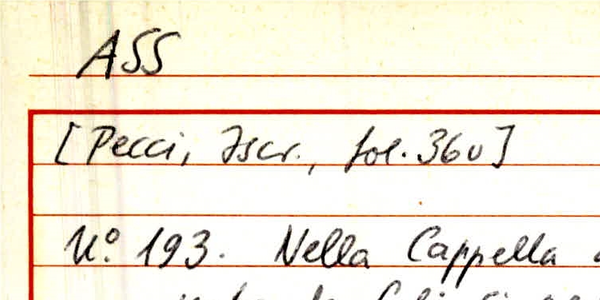 ASS
[Pecci, Iscr., fol. 36v]
N° 193. Nella Cappella